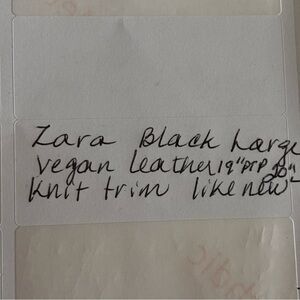 Zara Black Large
vegan leather 19" PTP 20" L
Knit trim like new